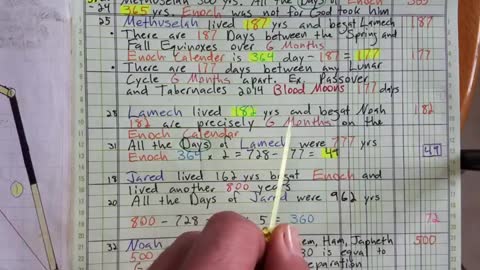 Methuselah 300 yrs. All the Days of Enoch 365
24 365 yrs. Enoch was not for God took Him
25 Methuselah lived 187 yrs and begat Lamech 187
• There are 187 Days between the Spring and
Fall Equinoxes over 6 Months
Enoch Calender is 364 day - 187 = 177 177
• There are 177 days between any Lunar
Cycle 6 Months apart. Ex. Passover
and Tabernacles 2014 Blood Moons 177 days
28 Lamech lived 182 yrs and begat Noah 182
182 are precisely 6 Months on the
Enoch Calendar
31 All the Days of Lamech were 777 yrs
Enoch 364 x 2 = 728 - 777 = 49 49
18 Jared lived 162 yrs begat Enoch and
lived another 800 years
20 All the Days of Jared were 962 yrs
800 - 728 = 5 360 72
32 Noah Ham, Japheth 500
500 30 is equal to